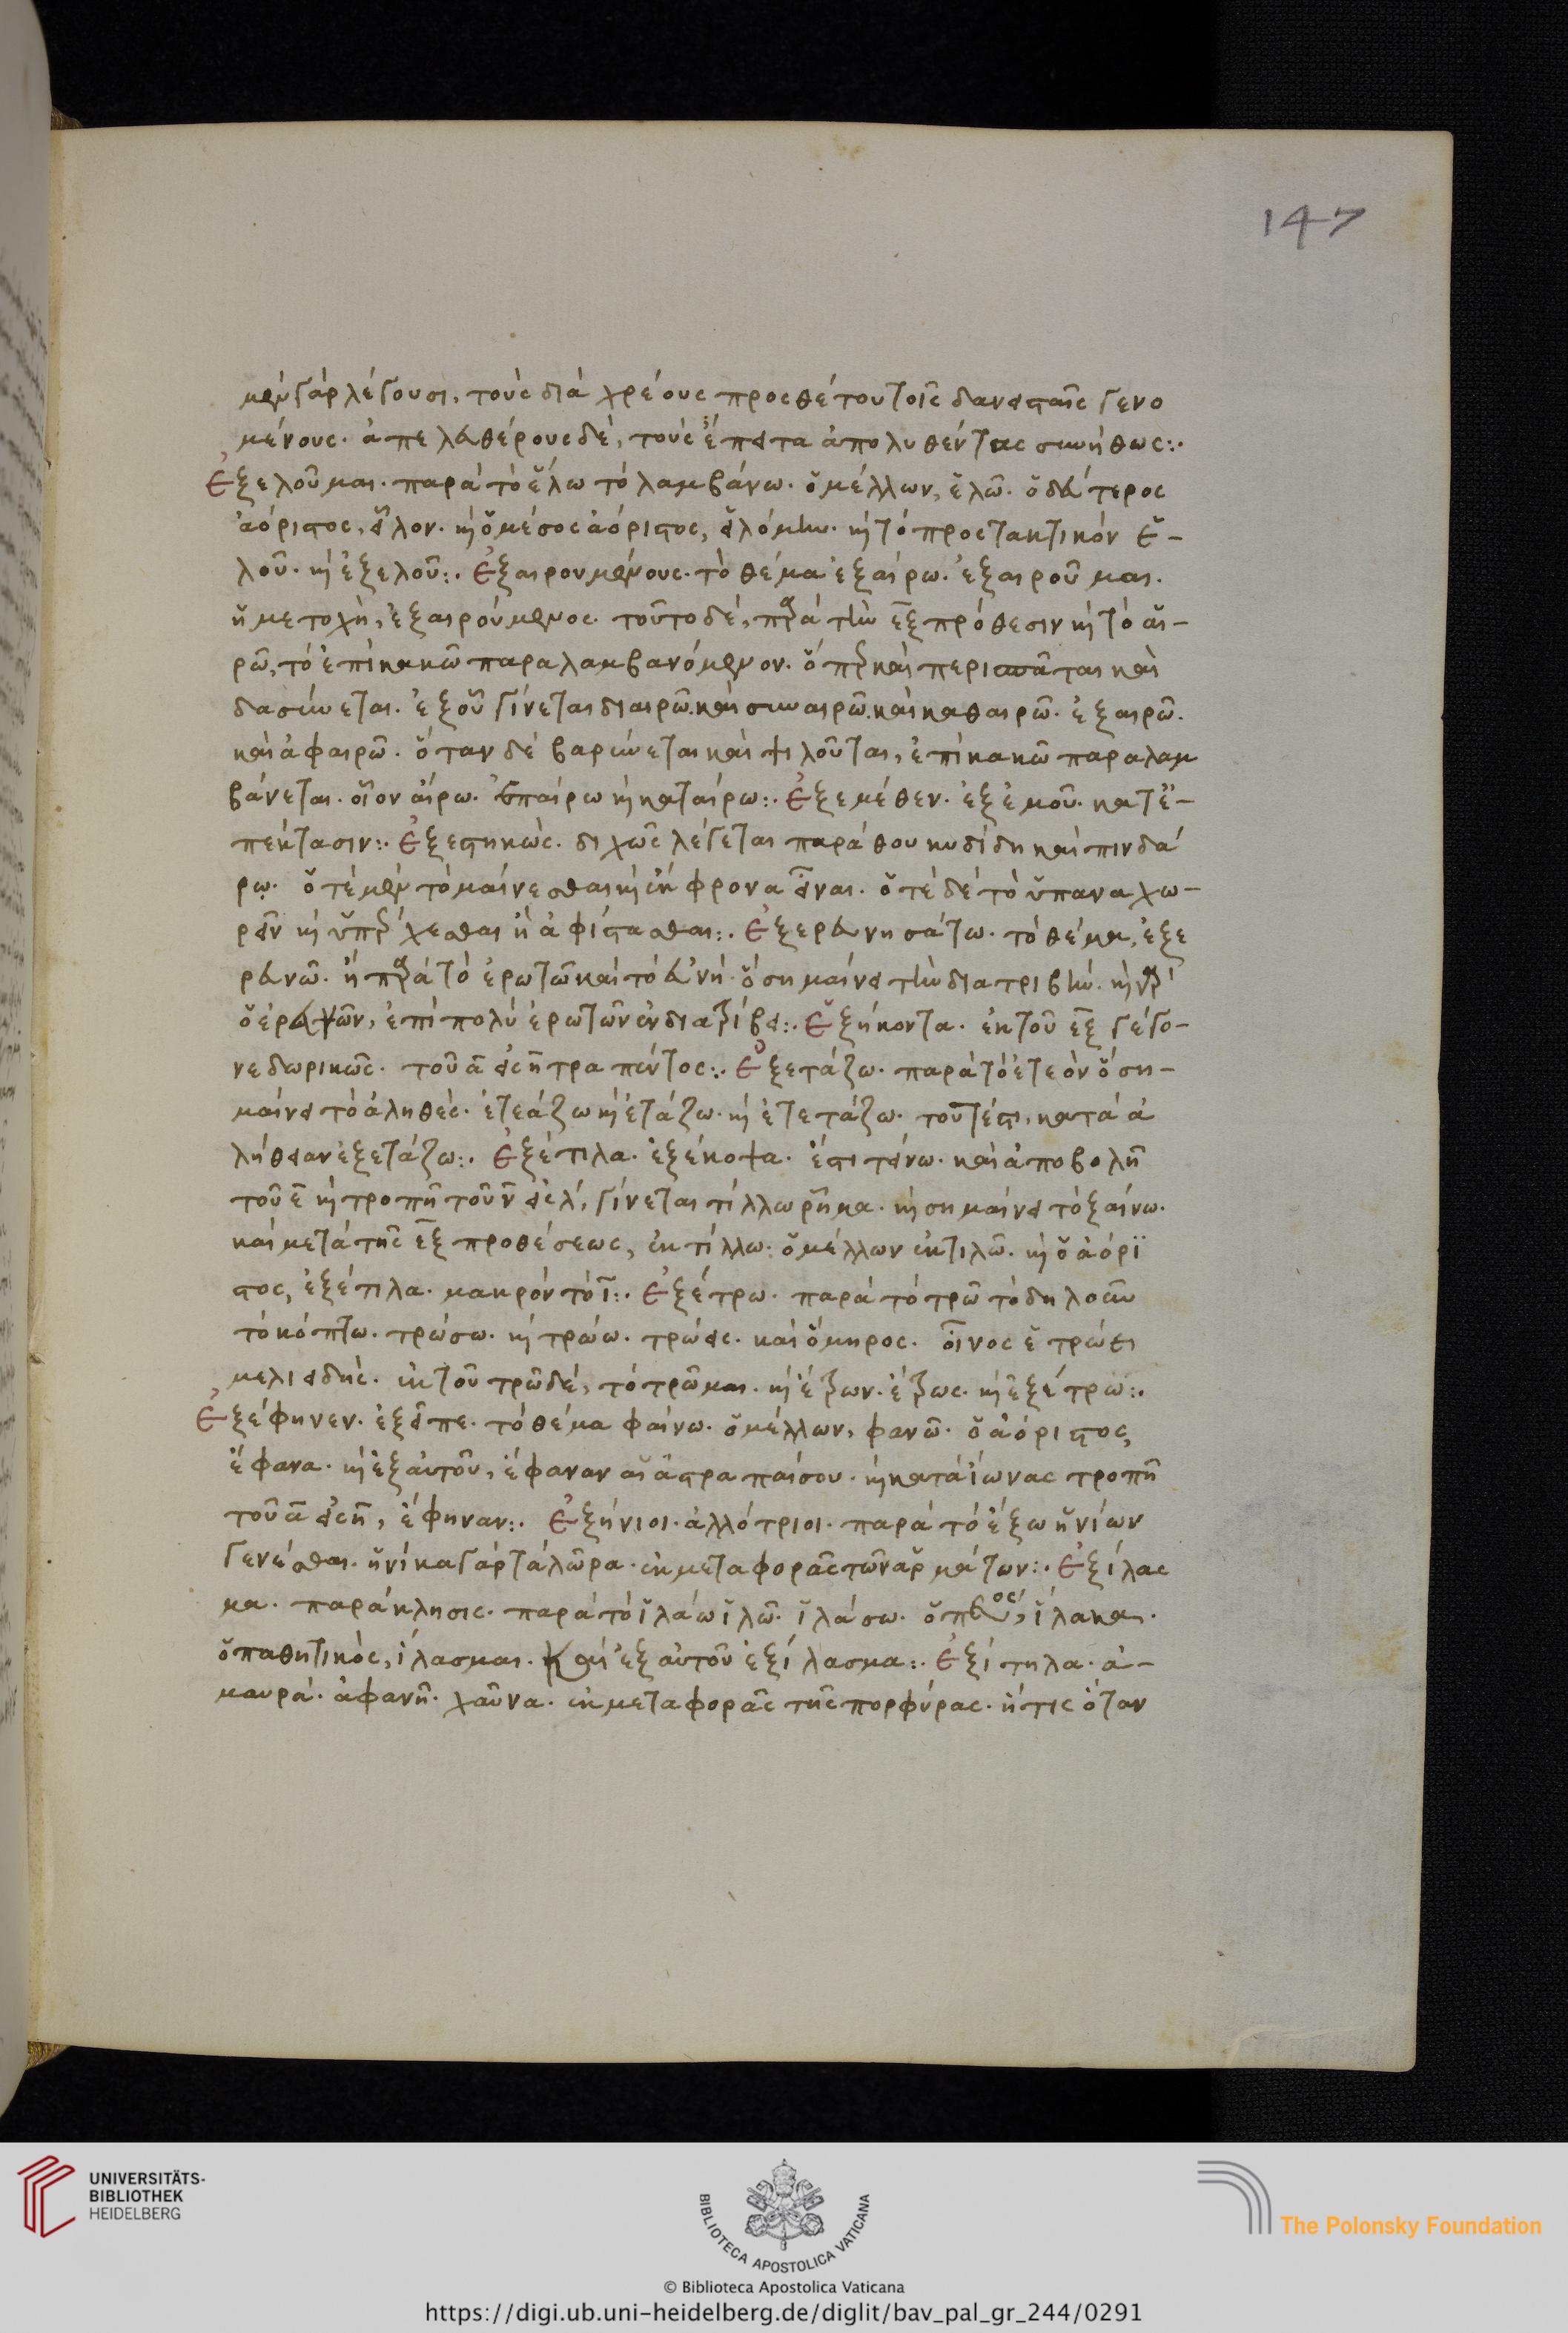 147
μὲν γάρ λέγουσι, τοὺς διὰ χρέους προσθέτου τοῖς δανεισταῖς γενο
μένους. ἀπελευθέρους δέ, τοὺς ἔπειτα ἀπολυθέντας συνήθως:.
Ἐξελοῦμαι. παρὰ τὸ ἕλω τὸ λαμβάνω. ὁ μέλλων, ἑλῶ. ὁ δεύτερος
ἀόριστος, εἷλον. καὶ ὁ μέσος ἀόριστος, εἱλόμην. καὶ τὸ προστακτικόν ἑ-
λοῦ. καὶ ἐξελοῦ:. Ἐξαιρουμένους. τὸ θέμα ἐξαίρω. ἐξαιροῦμαι.
ἡ μετοχὴ, ἐξαιρούμενος. τοῦτο δέ, παρὰ τὴν ἐξ πρόθεσιν καὶ τὸ αἱ-
ρῶ, τὸ ἐπὶ κακῶ παραλαμβανόμενον. ὅπερ καὶ περισπᾶται καὶ
δασύνεται. ἐξ οὗ γίνεται διαιρῶ. καὶ συναιρῶ. καὶ καθαιρῶ. ἐξαιρῶ.
καὶ ἀφαιρῶ. ὅταν δὲ βαρύνεται καὶ ψιλοῦται, ἐπὶ κακῶ παραλαμ
βάνεται. οἷον αἴρω. ἐπαίρω καὶ καταίρω:. Ἐξεμέθεν. ἐξ ἐμοῦ. κατ' ἐ-
πέκτασιν:. Ἐξεστηκὼς. διχῶς λέγεται παρὰ θουκυδίδη καὶ πινδά
ρῳ. ὁτὲ μὲν τὸ μαίνεσθαι καὶ ἔκφρονα εἶναι. ὁτὲ δὲ τὸ ὑπαναχω-
ρεῖν καὶ ὑπέρχεσθαι ἢ ἀφίστασθαι:. Ἐξερευνησάτω. τὸ θέμα, ἐξε
ρευνῶ. ἢ παρὰ τὸ ἐρωτῶ καὶ τὸ εὐνή. ὃ σημαίνει τὴν διατριβήν. καὶ γὰρ
ὁ ἐρευνῶν, ἐπὶ πολὺ ἐρωτῶν ἐνδιατρίβει:. Ἑξήκοντα. ἐκ τοῦ ἓξ γέγο-
νε δωρικῶς. τοῦ α εἰς η τραπέντος:. Ἐξετάζω. παρὰ τὸ ἐτεὸν ὃ ση-
μαίνει τὸ ἀληθές. ἐτεάζω καὶ ἐτάζω. καὶ ἐτετάζω. τουτέστι, κατὰ ἀ
λήθειαν ἐξετάζω:. Ἐξέτιλα. ἐξέκοψα. ἔστι τείνω. καὶ ἀποβολῆ
τοῦ ε καὶ τροπῆ τοῦ ν εἰς λ, γίνεται τίλλω ῥῆμα. καὶ σημαίνει τὸ ξαίνω.
καὶ μετὰ τῆς ἐξ προθέσεως, ἐκτίλλω. ὁ μέλλων ἐκτιλῶ. καὶ ὁ ἀόρι
στος, ἐξέτιλα. μακρόν τὸ ι:. Ἐξέτρω. παρὰ τὸ τρῶ τὸ δηλοῦν
τὸ κόπτω. τρώσω. καὶ τρώω. τρώεις. καὶ ὅμηρος. οἶνος ἔ τρώει
μελιειδής. ἐκ τοῦ τρῶ δέ, τὸ τρῶμαι. καὶ ἔτρων. ἔτρως. καὶ ἐξέτρω:.
Ἐξέφηνεν. ἐξεῖπε. τὸ θέμα φαίνω. ὁ μέλλων, φανῶ. ὁ ἀόριστος,
ἔφανα. καὶ ἐξ αὐτοῦ, ἔφαναν αἱ ἀστραπαί σου. καὶ κατὰ ἴωνας τροπῆ
τοῦ α εἰς η, ἔφηναν:. Ἐξήνιοι. ἀλλότριοι. παρὰ τὸ ἔξω ἡνίων
γενέσθαι. ἡνίκα γάρ τὰ λῶρα. ἐκ μεταφορᾶς τῶν ἁρμάτων:. Ἐξίλας
μα. παράκλησις. παρὰ τὸ ἱλάω ἱλῶ. ἱλάσω. ὁ , ἵλακα.
ὁ παθητικὸς, ἵλασμαι. καὶ ἐξ αὐτοῦ ἐξίλασμα:. Ἐξίτηλα. ἀ-
μαυρά. ἀφανῆ. χαῦνα. ἐκ μεταφορᾶς τῆς πορφύρας. ἥτις ὅταν
UNIVERSITÄTS-
BIBLIOTHEK
HEIDELBERG
BIBLIOTECA APOSTOLICA VATICANA
The Polonsky Foundation
© Biblioteca Apostolica Vaticana
https://digi.ub.uni-heidelberg.de/diglit/bav_pal_gr_244/0291